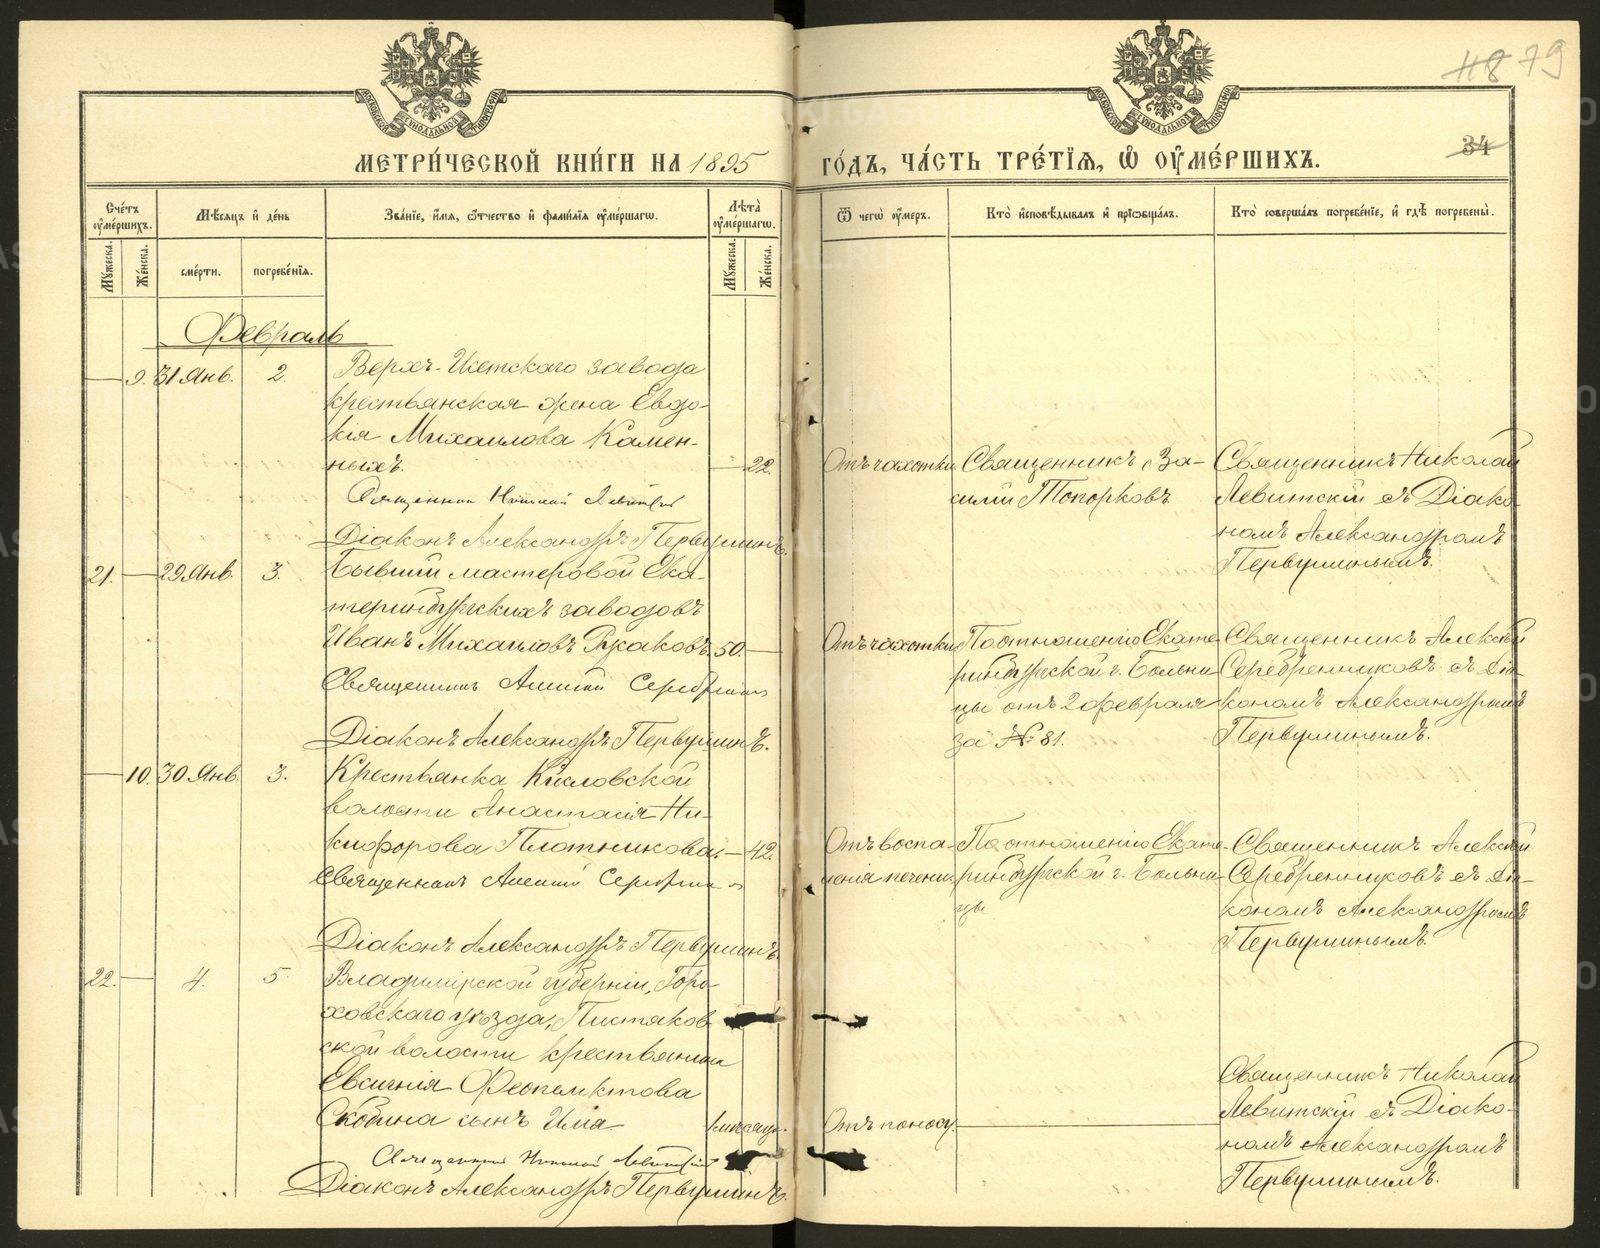 118 79
34
МЕТРИ́ЧЕСКОЙ КНИ́ГИ НА 1895 ГО́ДЪ, ЧА́СТЬ ТРЕ́ТІЯ, Ѡ ОУ҆МЕ́РШИХЪ.
Сче́тъ оу҆ме́ршихъ.
Мꙋ́жеска.
Же́нска.
Мѣ́сяцъ и҆ де́нь
сме́рти.
погребе́нїя.
Зва́нїе, и҆́мя, ѻ҆́тчество и҆ фами́лїя оу҆ме́ршагѡ.
Лѣ́та оу҆ме́ршагѡ.
Мꙋ́жеска.
Же́нска.
Ѿ чегѡ̀ оу҆́меръ.
Кто̀ и҆сповѣ́дывалъ и҆ прїѡбща́лъ.
Кто̀ соверша́лъ погребе́нїе, и҆ гдѣ̀ погребены̀.
Февраль
9. 31 Янв. 2.
Верхъ-Исетскаго завода
крестьянская жена Евдо-
кія Михаилова Камен-
ныхъ. 22
Священник Николай Левитскій
Діаконъ Александръ Первушинъ.
Отъ чахотки
Священникъ
Топорковъ
Священникъ Николай
Левитскій съ Діако-
номъ Александромъ
Первушинымъ.
21. 29 Янв. 3.
Бывшій мастеровой Ека-
теринбургскихъ заводовъ
Иванъ Михаиловъ Рожаковъ. 50.
Священникъ Алексій Серебренник
Діаконъ Александръ Первушинъ.
Отъ чахотки
По отношенію Екате-
ринбургской г. Больни-
цы отъ 2 февраля
за № 81.
Священникъ Алексій
Серебренниковъ съ Діа-
кономъ Александромъ
Первушинымъ.
10. 30 Янв 3.
Крестьянка
волости Анастасія Ни-
кифорова Плотникова. 42.
Священникъ Алексій
Діаконъ Александръ Первушинъ.
Отъ воспа-
ленія печени.
По отношенію Екате-
ринбургской г. Больни-
цы
Священникъ Алексій
Серебренниковъ съ Діа-
кономъ Александромъ
Первушинымъ.
22. 4. 5.
Владимірской губерніи, Горо-
ховскаго уѣзда, Пистяков-
ской волости крестьянина
Евсигнія
Скобина сынъ 1 мѣсяц.
Священник Николай Левитскій
Діаконъ Александръ Первушинъ.
Отъ поносу.
Священникъ Николай
Левитскій съ Діако-
номъ Александромъ
Первушинымъ.